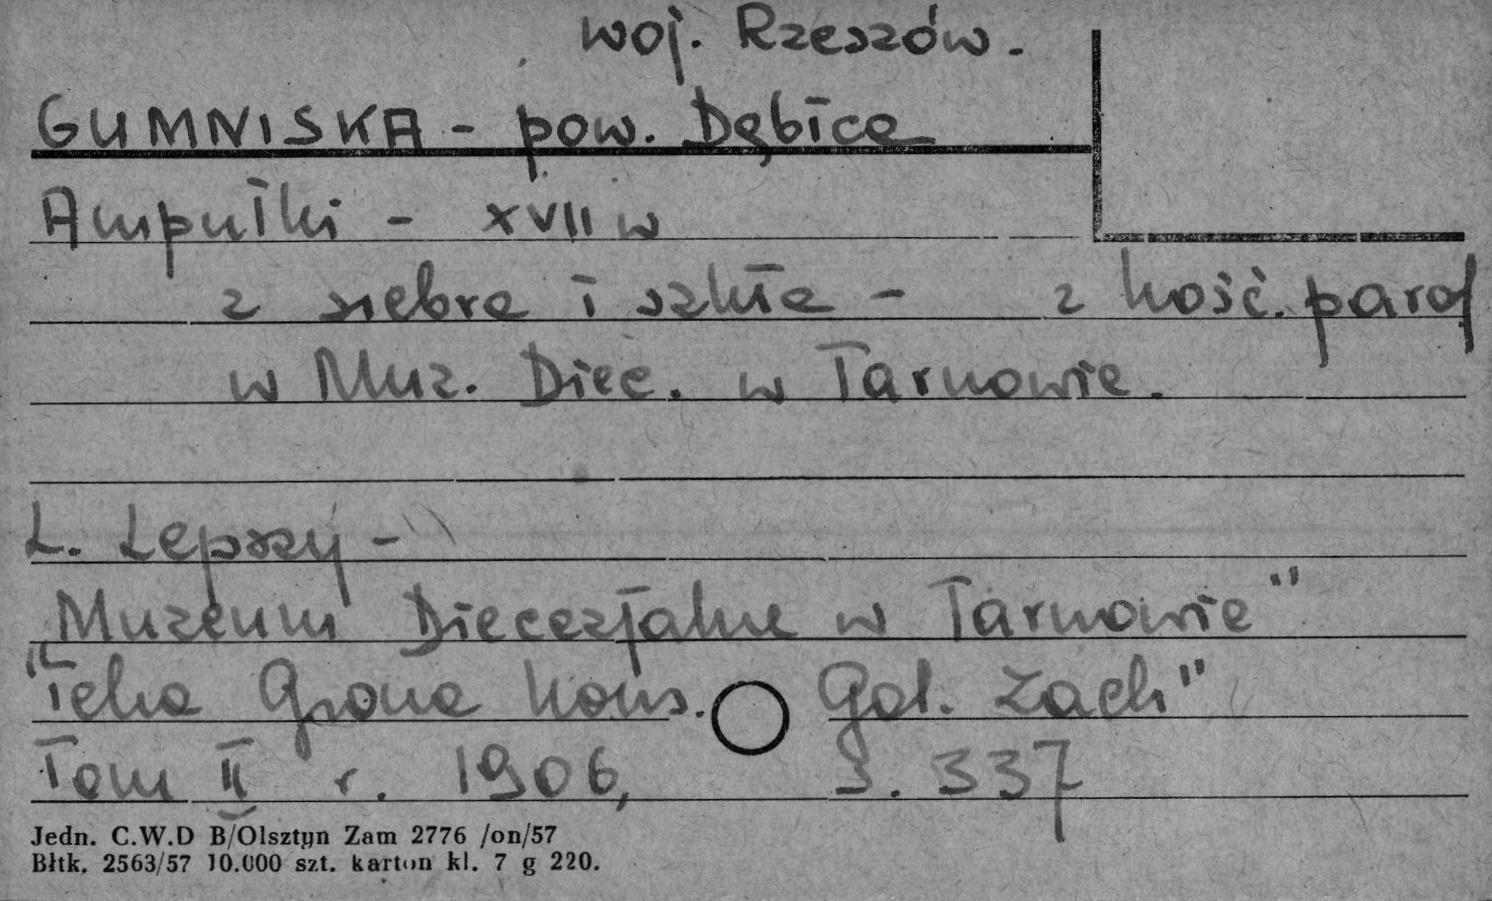 woj. Rzeszów.
GUMNISKA - pow. Dębica
Ampułki - XVII w
z srebra i szkła - z kość. paraf
w Muz. Diec. w Tarnowie.
L. Lepszy -
Muzeum Diecezjalne w Tarnowie"
"Teka Grona Kons. Gal. Zach"
Tom II r. 1906, S. 337
Jedn. C.W.D B/Olsztyn Zam 2776 /on/57
Błtk. 2563/57 10.000 szt. karton kl. 7 g 220.